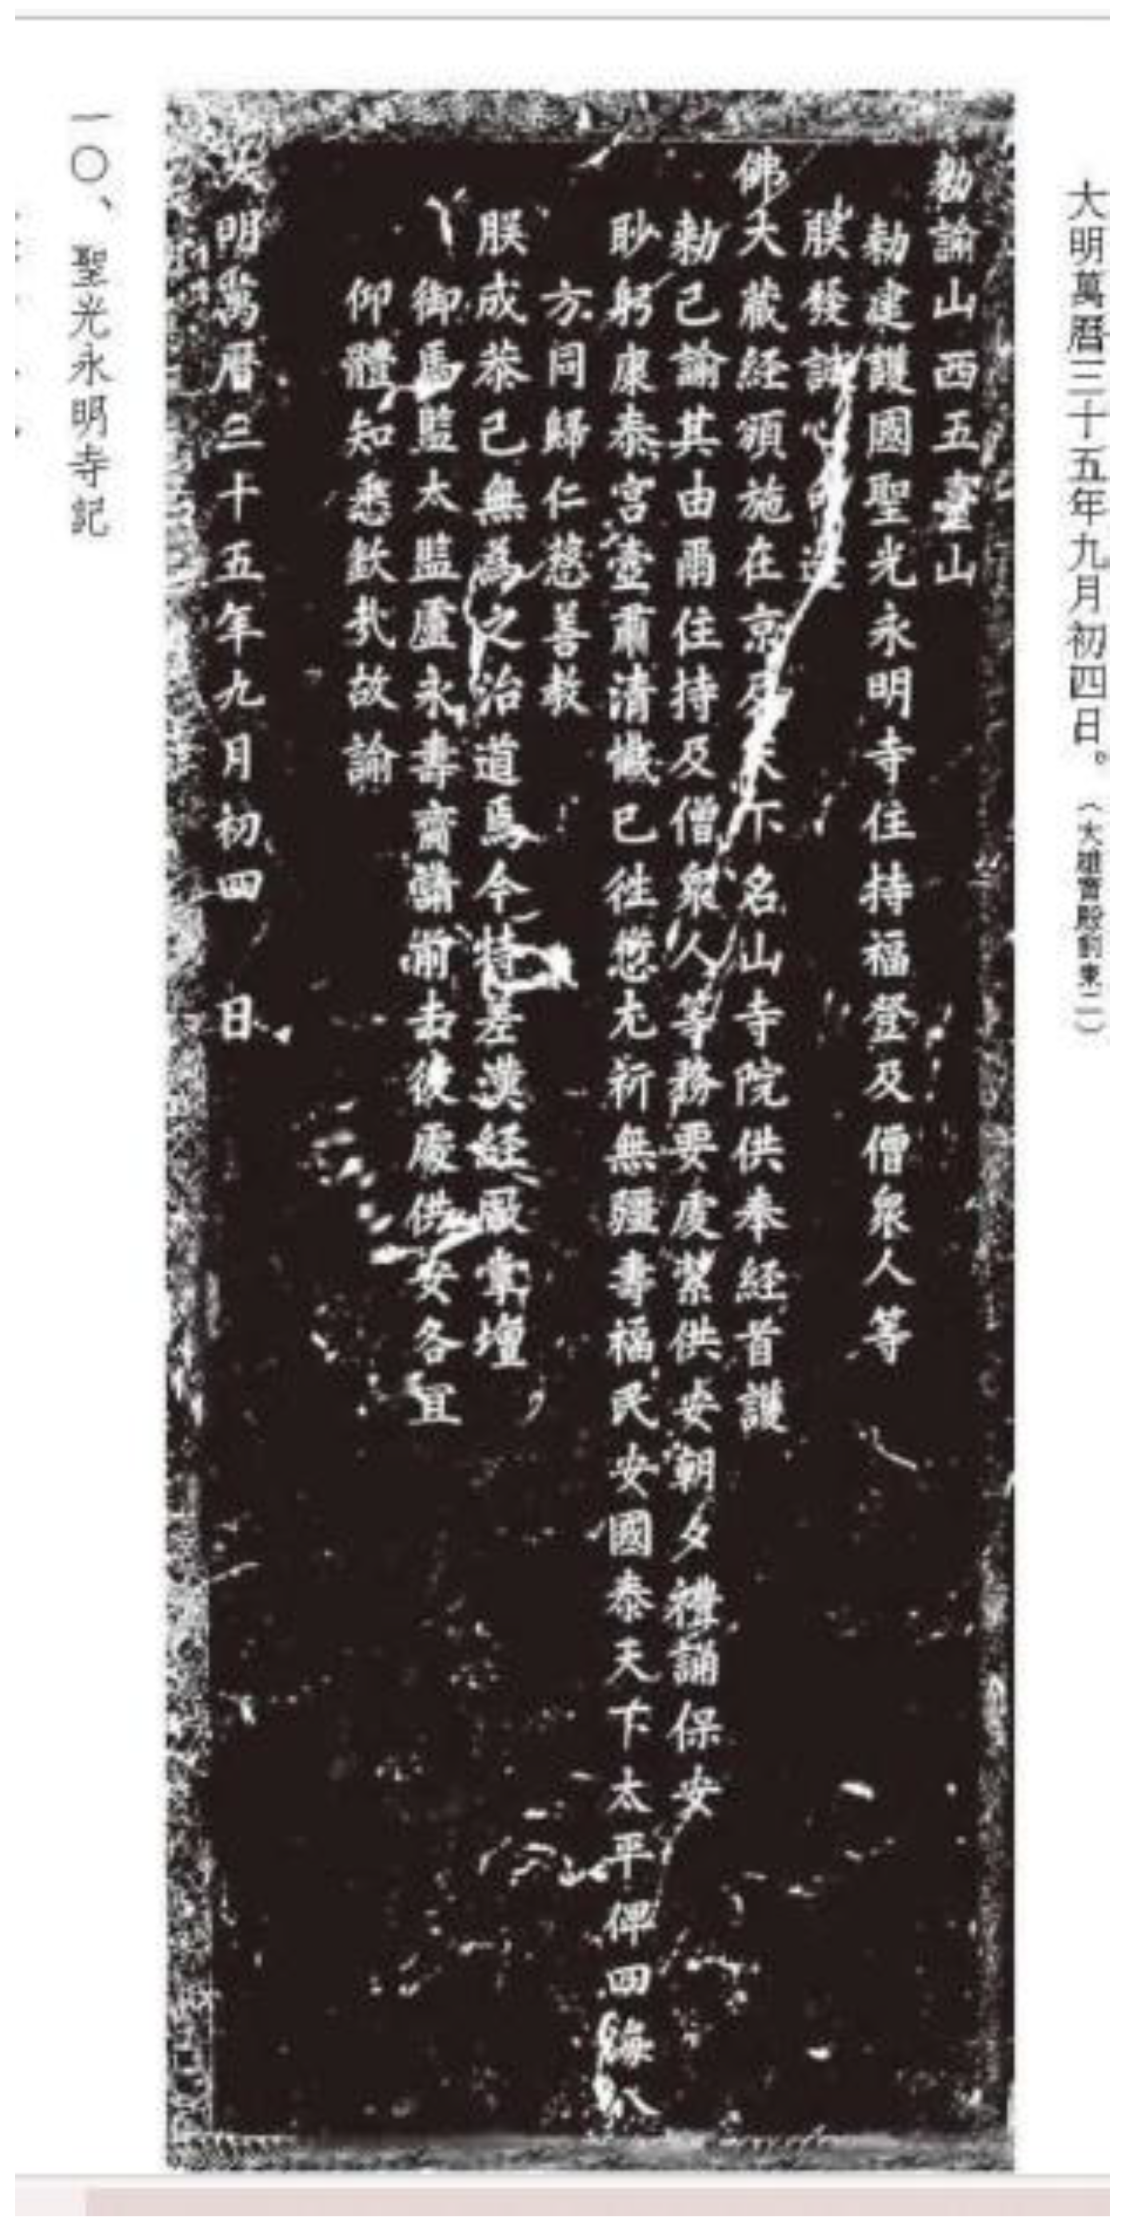 大明萬曆三十五年九月初四日。（大雄寶殿前東二）
勑諭山西五臺山
勑建護國聖光永明寺住持福登及僧衆人等
朕發誠心印造
佛大藏経頒施在京及天下名山寺院供奉経首護
勑已諭其由爾住持及僧衆人等務要虔潔供安朝夕禮誦保安
眇躬康泰宮壼肅清懺已徃愆尤祈無疆壽福民安國泰天下太平俾四海八
方同歸仁慈善教
朕成恭己無為之治道焉今特差漢経厰掌壇
御馬監太監盧永壽齎請前去彼處供安各宜
仰體知悉欽㢤故諭
明萬曆三十五年九月初四日
一〇、聖光永明寺記